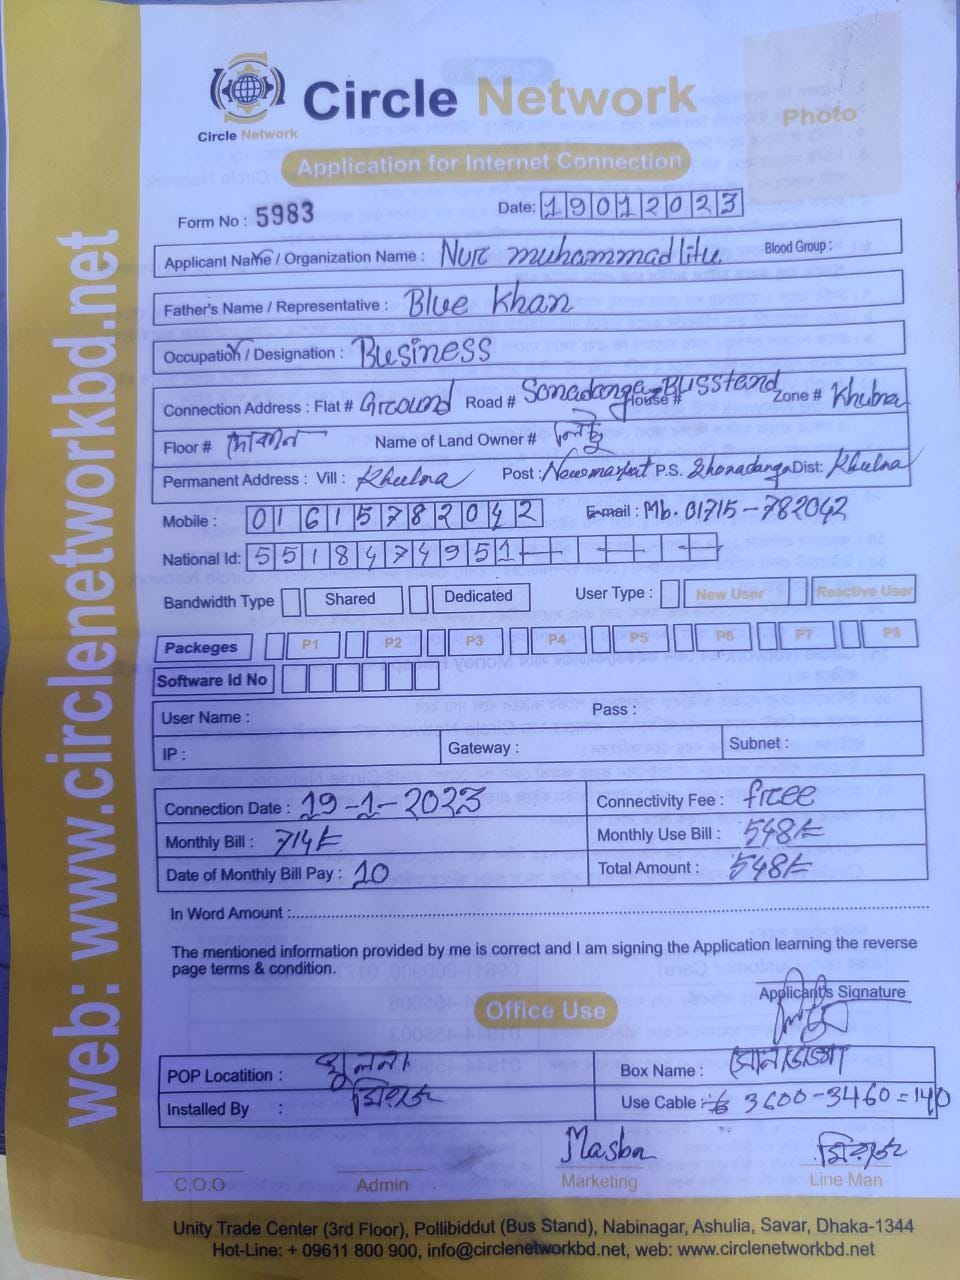 Circle Network
Circle Network
Photo
Application for Internet Connection
Form No : 5983
Date: 19012023
Applicant Name / Organization Name : Nur muhammad litu Blood Group :
Father's Name / Representative : Blue Khan
Occupation / Designation : Business
Connection Address : Flat # Ground Road # Sonadanga Busstand House # Zone # Khulna
Floor # দোকান Name of Land Owner # লিটু
Permanent Address : Vill : Khulna Post : Newmarket P.S. Shonadanga Dist: Khulna
Mobile : 01615782042 E-mail : Mb. 01715-782042
National Id: 5518474951
Bandwidth Type Shared Dedicated User Type : New User Reactive User
Packeges P1 P2 P3 P4 P5 P6 P7 P8
Software Id No
User Name : Pass :
IP : Gateway : Subnet :
Connection Date : 19-1-2023 Connectivity Fee : free
Monthly Bill : 714/= Monthly Use Bill : 548/=
Date of Monthly Bill Pay : 10 Total Amount : 548/=
In Word Amount :
The mentioned information provided by me is correct and I am signing the Application learning the reverse
page terms & condition.
Applicant's Signature
লিটু
Office Use
POP Locatition : খুলনা Box Name : সোনাডাঙ্গা
Installed By : মিরাজ Use Cable : 3600-3460=140
Masba মিরাজ
C.O.O Admin Marketing Line Man
Unity Trade Center (3rd Floor), Pollibiddut (Bus Stand), Nabinagar, Ashulia, Savar, Dhaka-1344
Hot-Line: + 09611 800 900, info@circlenetworkbd.net, web: www.circlenetworkbd.net
web: www.circlenetworkbd.net